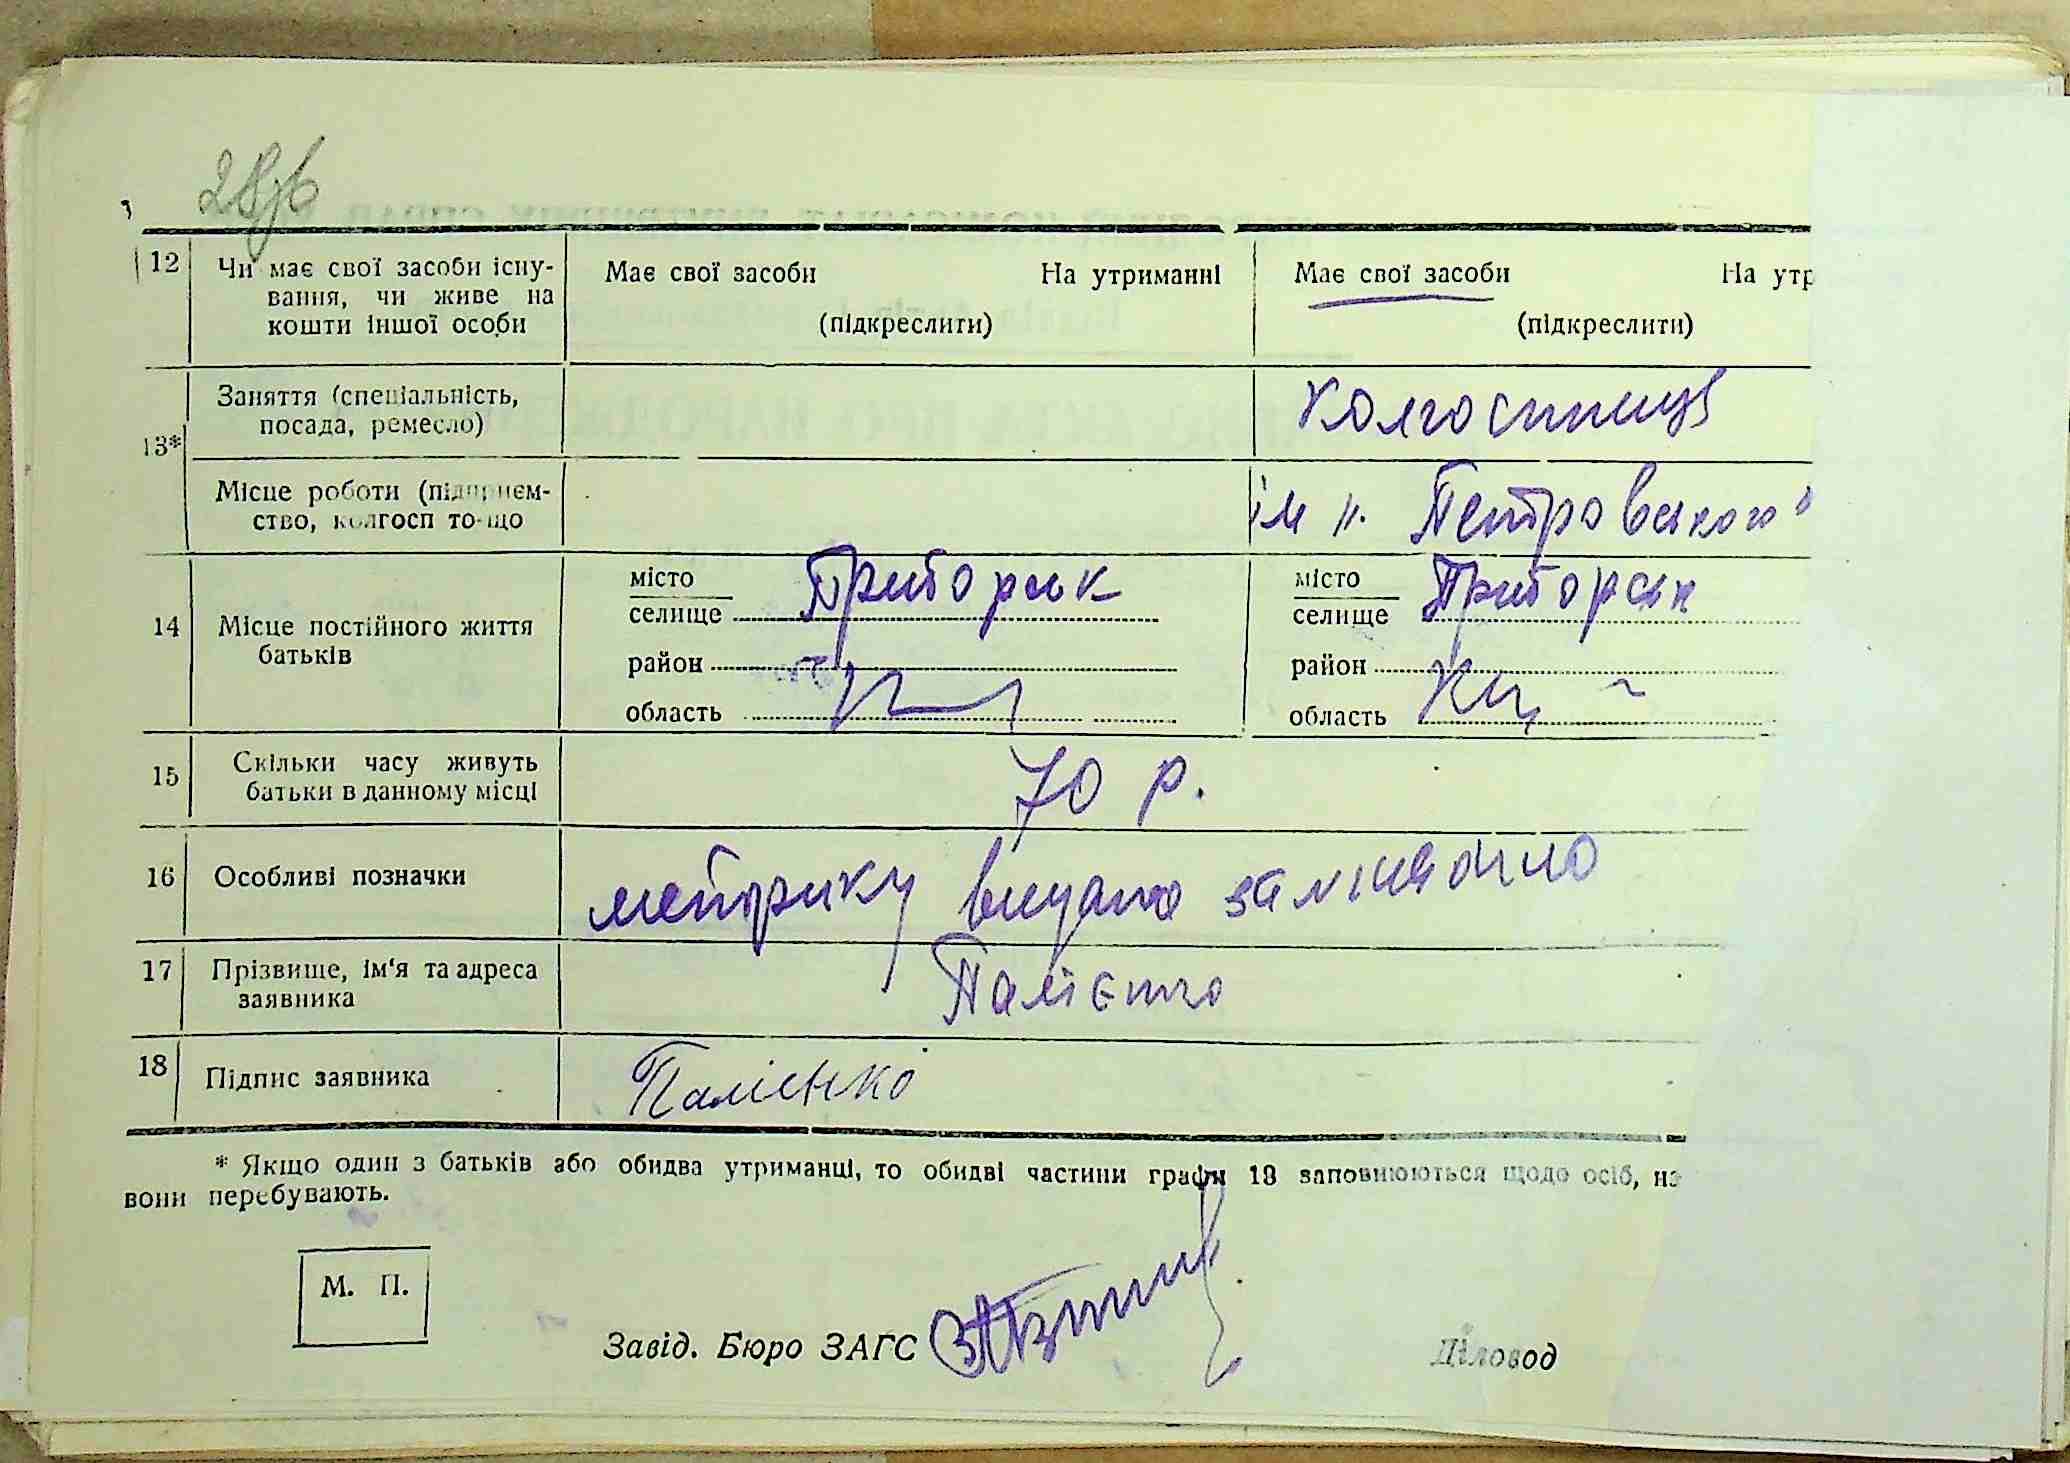 28зв
12 Чи має свої засоби існу- Має свої засоби На утриманні Має свої засоби На утр
вання, чи живе на
кошти іншої особи (підкреслити) (підкреслити)
13* Заняття (спеціальність, колгоспниця
посада, ремесло)
Місце роботи (підприєм- ім п. Петровського
ство, колгосп то-що
14 Місце постійного життя місто Приборськ місто Приборськ
батьків селище селище
район район
область область
15 Скільки часу живуть 70 р.
батьки в данному місці
16 Особливі позначки метрику видано
17 Прізвище, ім'я та адреса Палієнко
заявника
18 Підпис заявника Палієнко
* Якщо один з батьків або обидва утриманці, то обидві частини графи 13 заповнюються щодо осіб, на
вони перебувають.
М. П.
Завід. Бюро ЗАГС Діловод